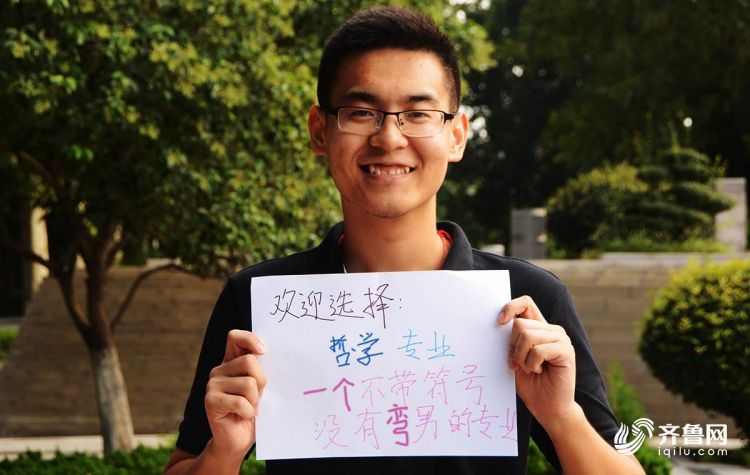 欢迎选择:
哲学 专业
一个不带符号
没有弯男的专业
齐鲁网
iqilu.com